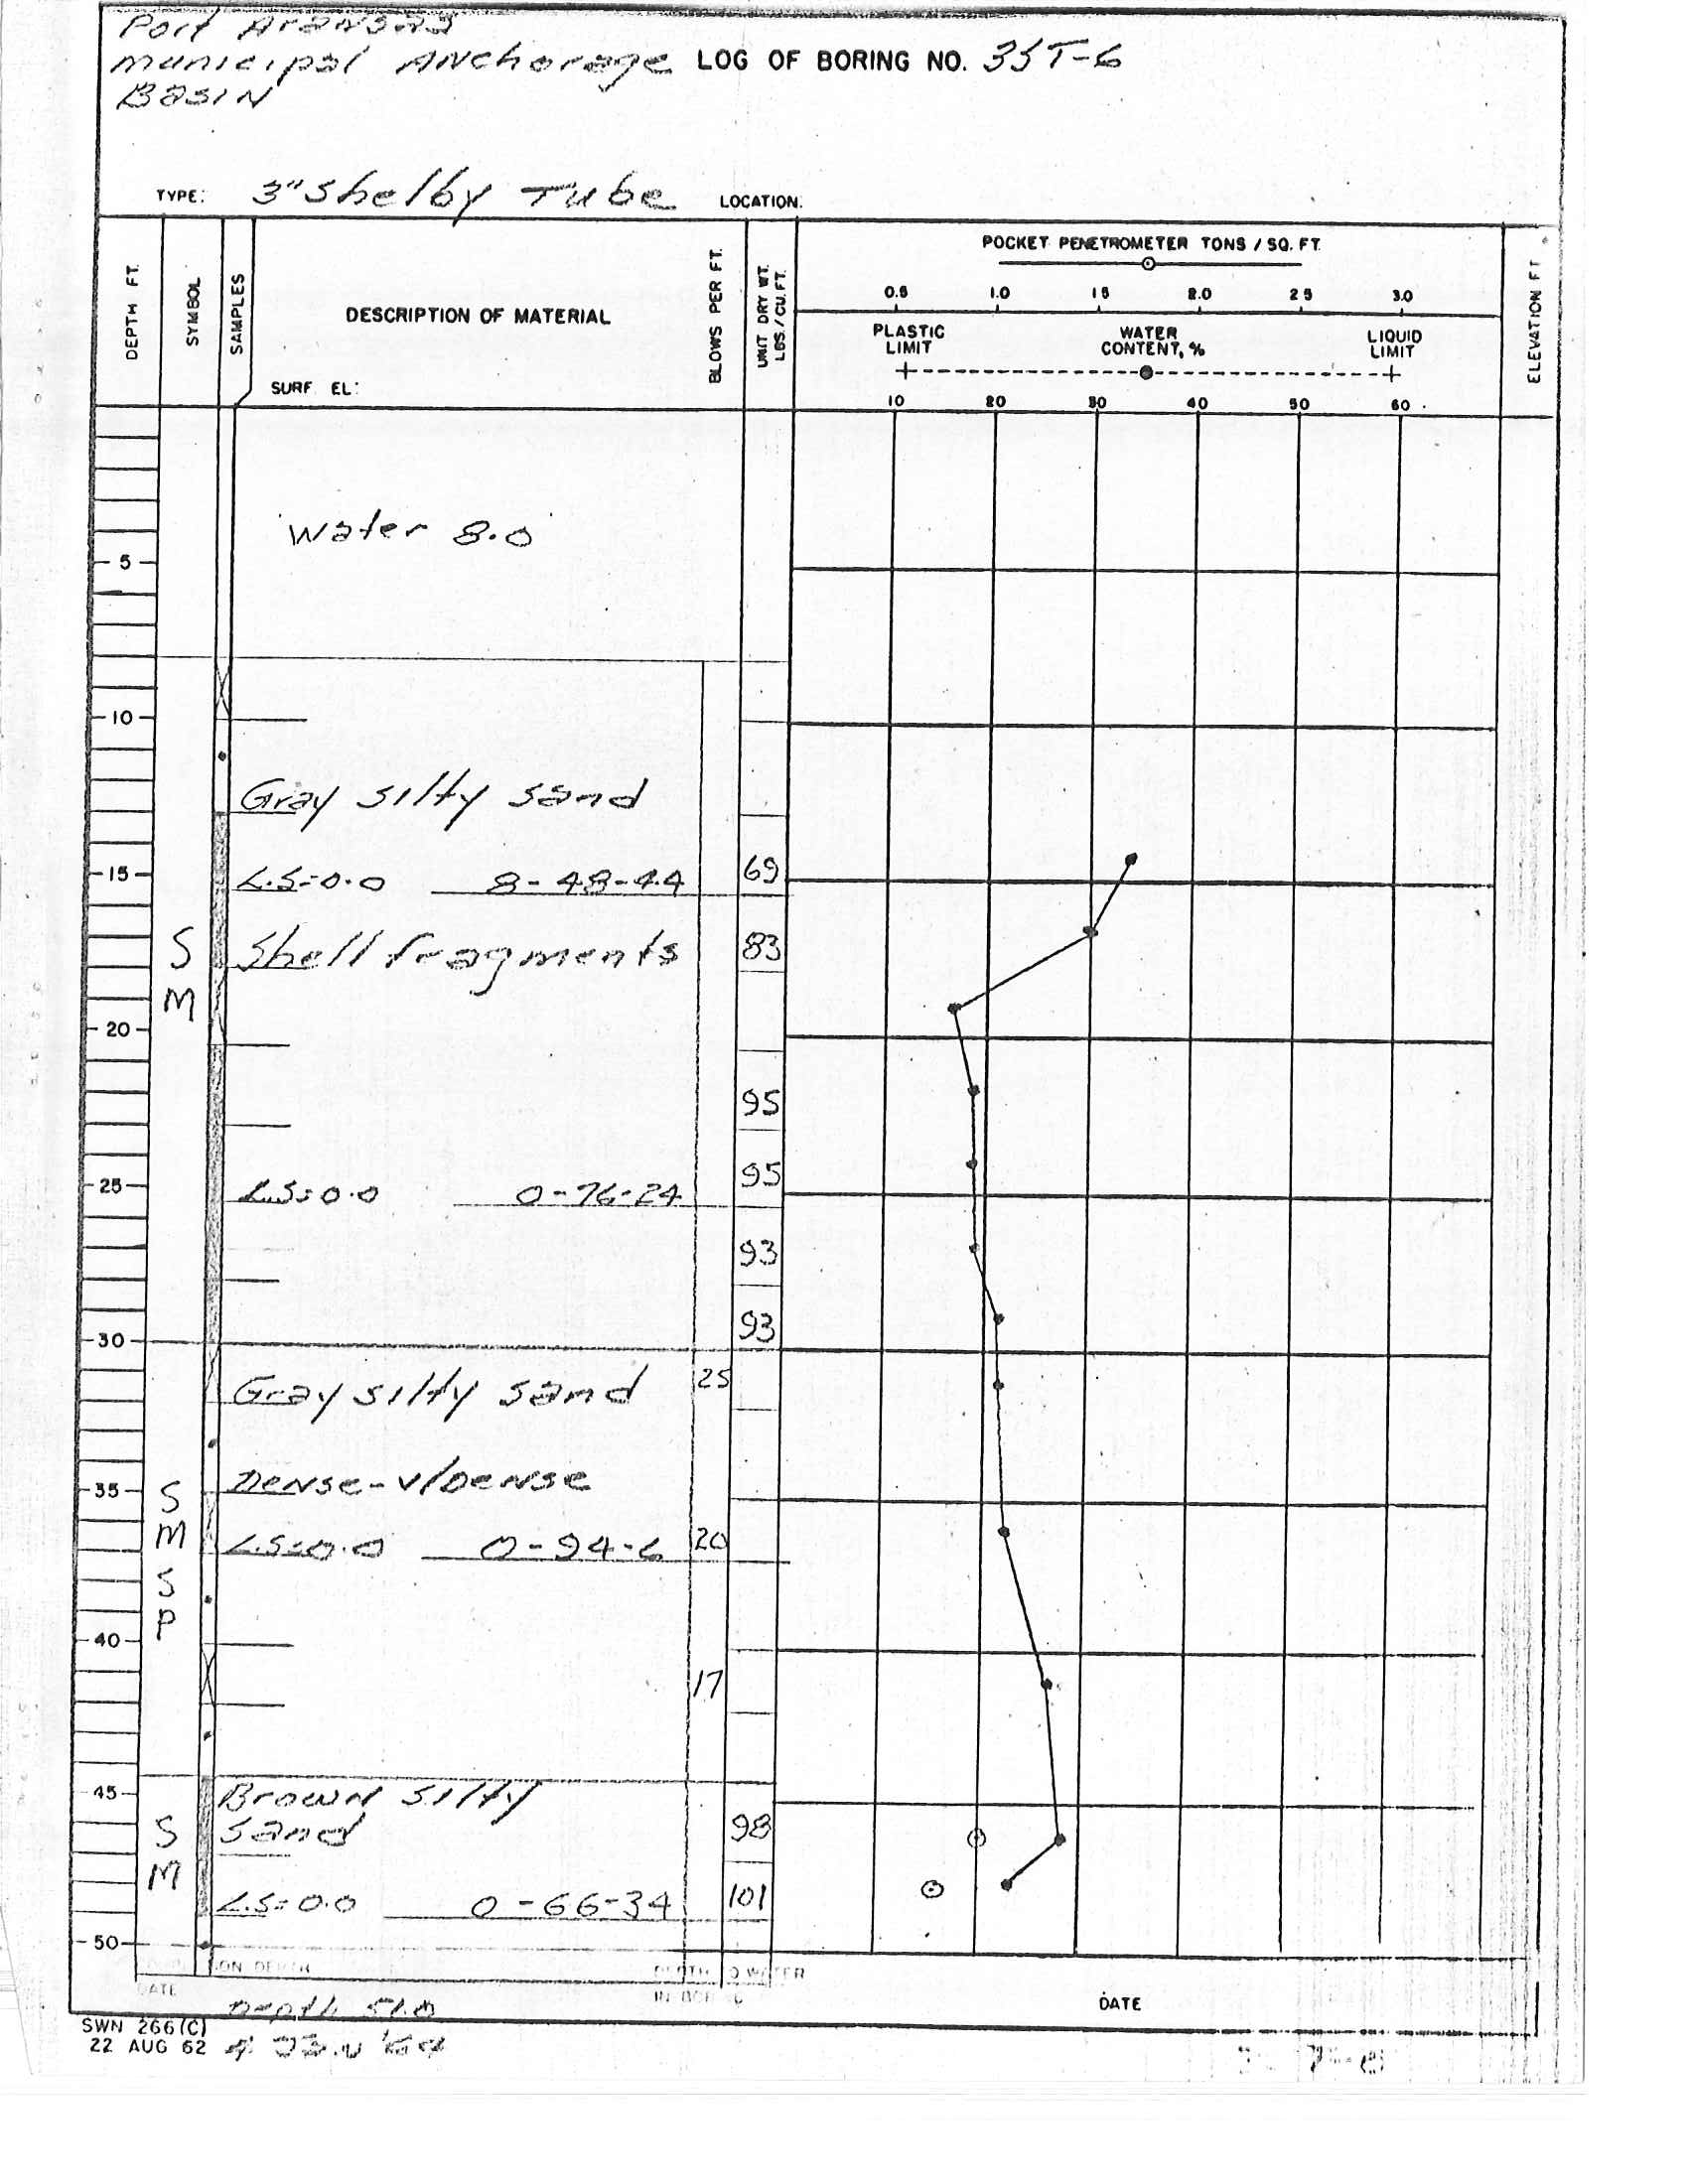 Port Aransas
Municipal Anchorage LOG OF BORING NO. 3ST-6
Basin
TYPE: 3" Shelby Tube LOCATION:
DEPTH FT.
SYMBOL
SAMPLES
DESCRIPTION OF MATERIAL
SURF. EL:
BLOWS PER FT.
UNIT DRY WT. LBS./CU.FT.
POCKET PENETROMETER TONS / SQ. FT.
0.5 1.0 1.5 2.0 2.5 3.0
PLASTIC LIMIT
WATER CONTENT, %
LIQUID LIMIT
10 20 30 40 50 60
ELEVATION FT
Water 8.0
5
10
Gray silty sand
15 L.S=0.0 8-48-44 69
S M Shell fragments 83
20
95
95
25 L.S=0.0 0-76-24
93
93
30
Gray silty sand 25
35 S M Dense-v/Dense
L.S=0.0 0-94-6 20
S P
40
17
45 Brown silty
S M sand 98
L.S=0.0 0-66-34 101
50
DATE
Depth 51.0
DATE
SWN 266(C)
22 AUG 62